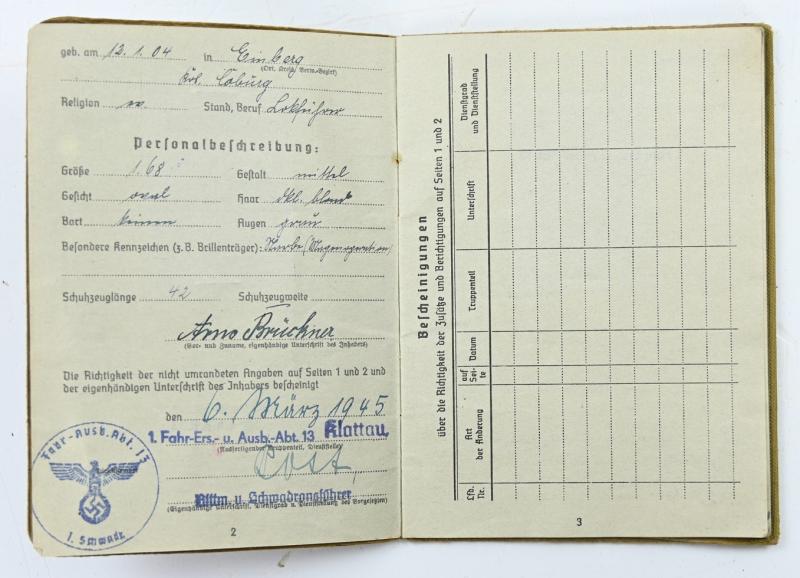 geb. am 12.1.04 in Einberg
(Ort, Kreis, Verw.-Bezirk)
Krs. Coburg
Religion ev. Stand, Beruf Lokführer
Personalbeschreibung:
Größe 1.68 Gestalt mittel
Gesicht oval Haar dkl. blond
Bart keinen Augen grau
Besondere Kennzeichen (z. B. Brillenträger): Narbe (Magenoperation)
Schuhzeuglänge 42 Schuhzeugweite
Arno Brückner
(Vor- und Zuname, eigenhändige Unterschrift des Inhabers)
Die Richtigkeit der nicht umrandeten Angaben auf Seiten 1 und 2 und
der eigenhändigen Unterschrift des Inhabers bescheinigt
den 6. März 1945
1. Fahr-Ers.- u. Ausb.-Abt. 13 Klattau,
(Ausfertigender Truppenteil, Dienststelle)
Rittm. u. Schwadronsführer
(Eigenhändige Unterschrift, Dienstgrad u. Dienststellung des Vorgesetzten)
Fahr-Ausb. Abt. 13
1. Schwadr.
2
Bescheinigungen
über die Richtigkeit der Zusätze und Berichtigungen auf Seiten 1 und 2
Lfd. Nr.
Art der Änderung
auf Seite
Datum
Truppenteil
Unterschrift
Dienstgrad und Dienststellung
3